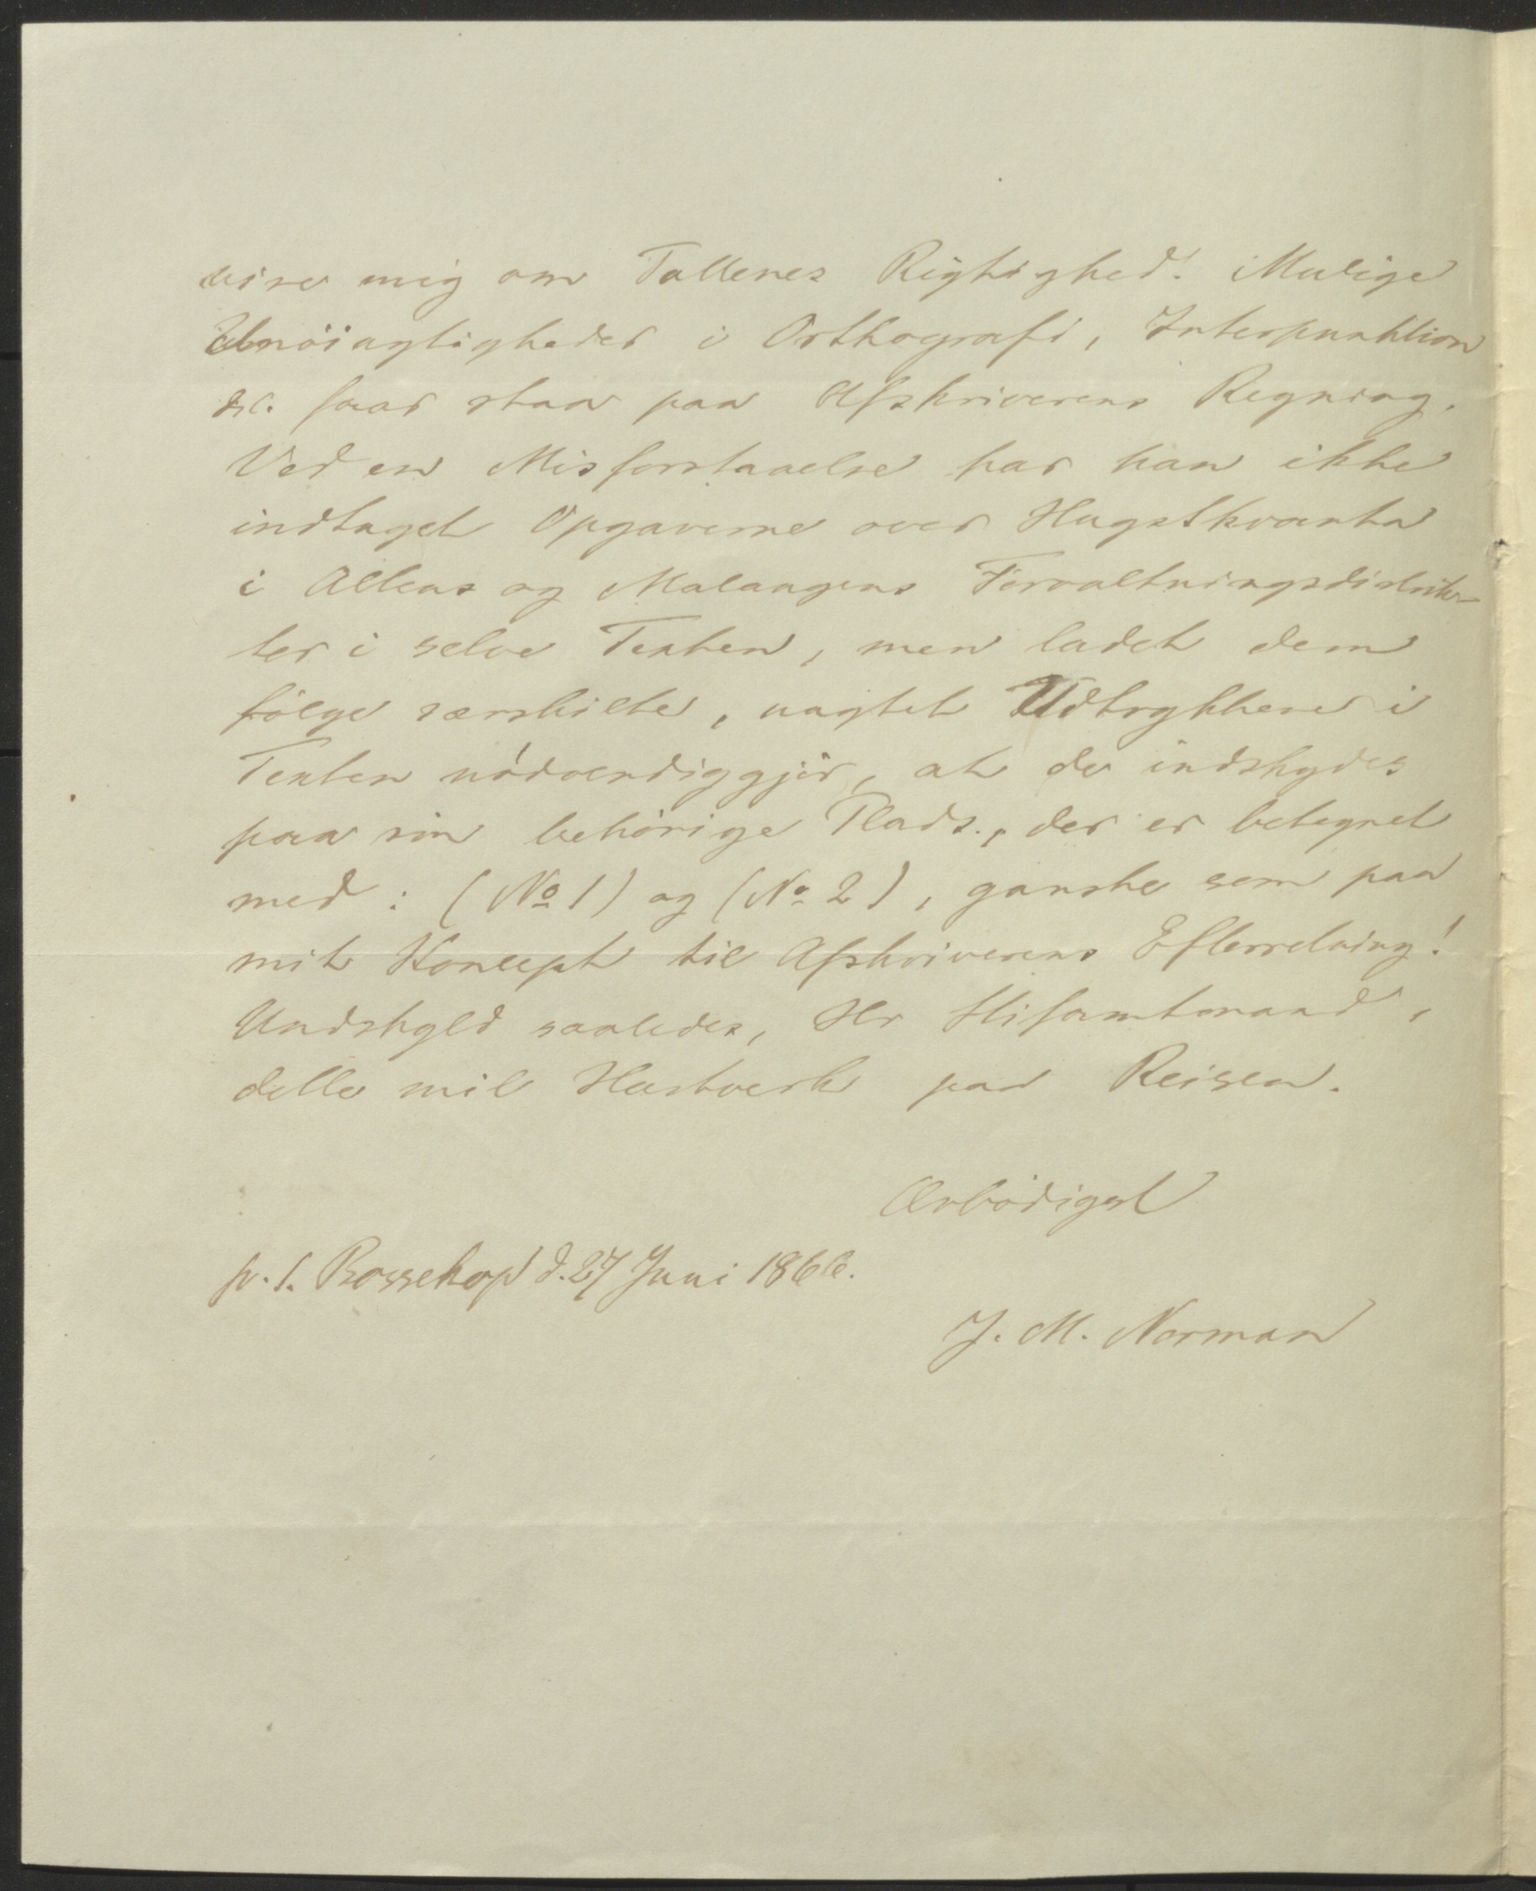 vise mig om Tallenes Rigtighed! Mulige
Unöiagtigheder i Orthografi, Interpunktion
&c. faar staa paa Afskriverens Regning.
Ved en Misforstaaelse har han ikke
indtaget Opgaverne over Hugstkvanta
i Altens og Malangens Forvaltningsdistrik-
ter i selve Texten, men ladet dem
følge særskilte, uagtet Udtrykkene i
Texten nödvendiggjör, at de indskydes
paa sin behörige Plads, der er betegnet
med: (No 1) og (No 2), ganske som paa
mit Koncept til Afskriverens Efterretning!
Undskyld saaledes, Hr Stiftamtmand,
dette mit Hastverk paa Reisen.
Ærbödigst
p. t. Bossekop d. 27 Juni 1866.
J. M. Norman